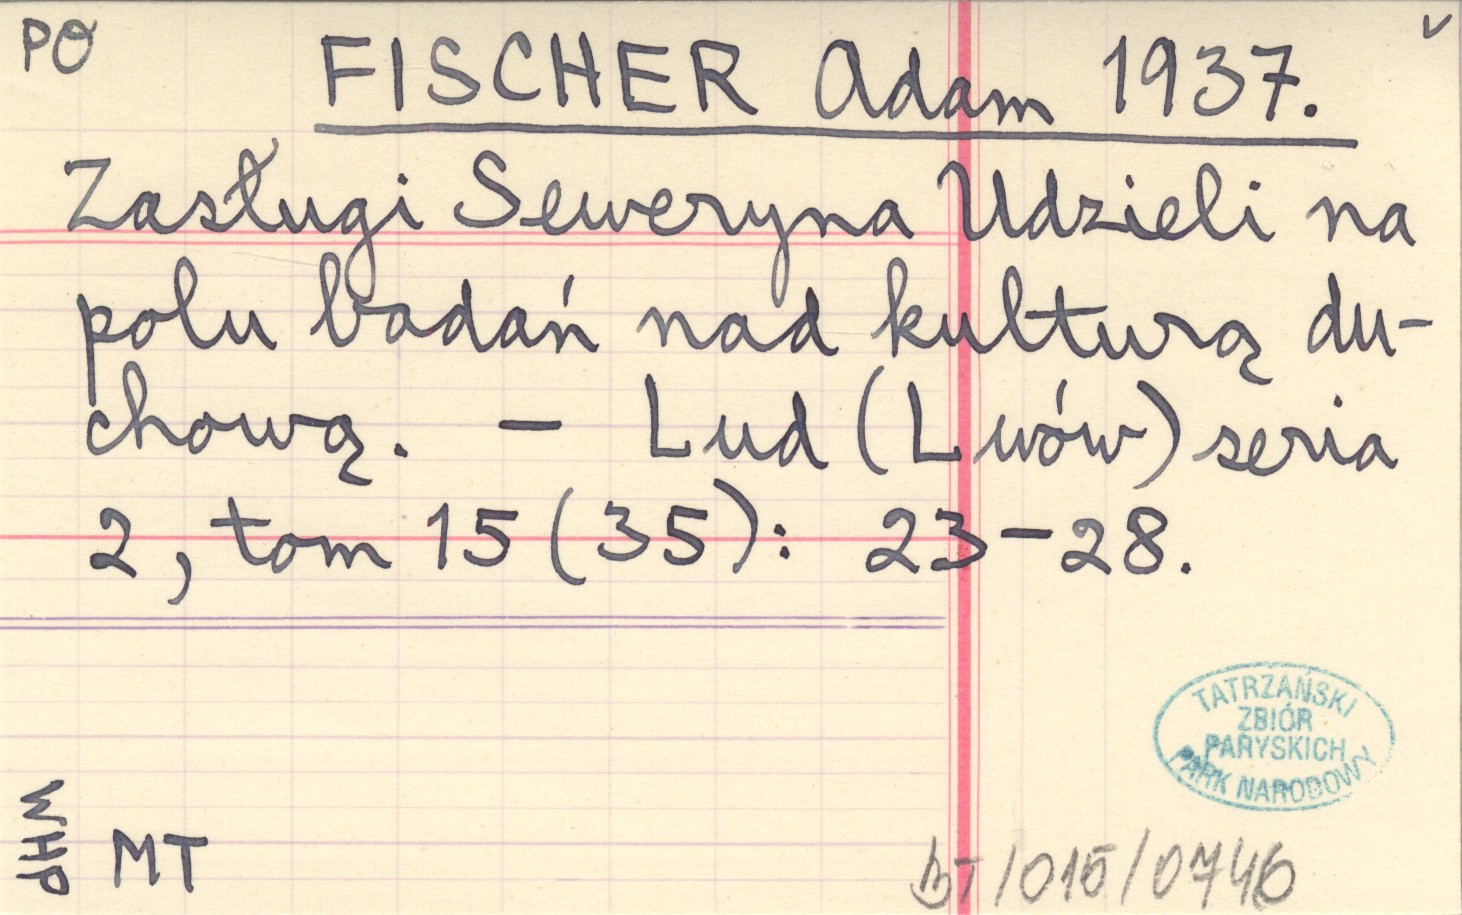 PO
v
FISCHER Adam 1937.
Zasługi Seweryna Udzieli na
polu badań nad kulturą du-
chową. – Lud (Lwów) seria
2, tom 15 (35): 23–28.
TATRZAŃSKI
ZBIÓR
PARYSKICH
PARK NARODOWY
WHP
MT
BT/015/0746